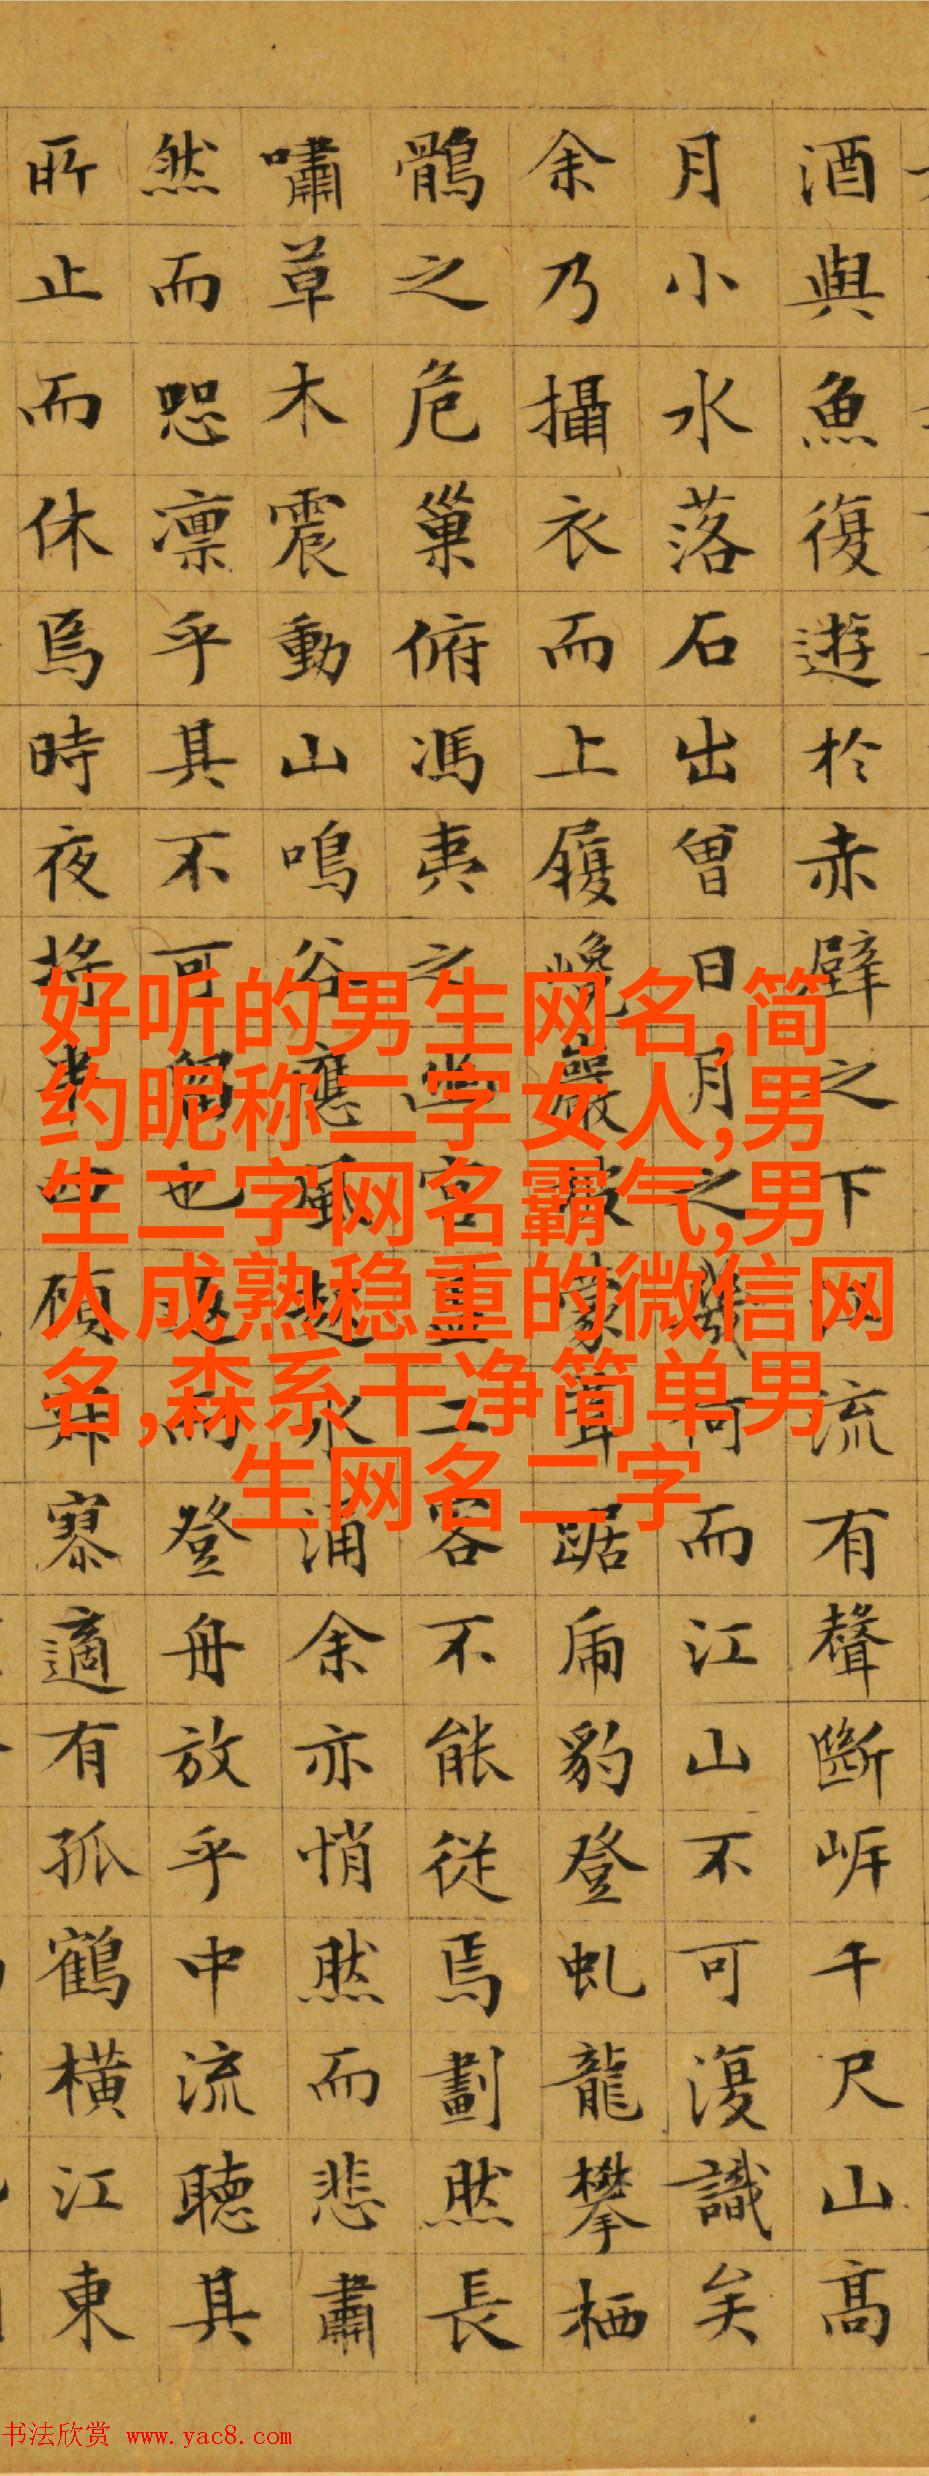 酒與魚復遊於赤壁之下江流有聲斷岸千尺山高
月小水落石出曾日月之幾何而江山不可復識矣
余乃攝衣而上履巉巖披蒙茸踞虎豹登虬龍攀栖
鶻之危巢俯馮夷之幽宮蓋二客不能從焉劃然長
嘯草木震動山鳴谷應風起水涌余亦悄然而悲肅
然而恐凛乎其不可留也返而登舟放乎中流聽其
所止而休焉時夜將半四顧寂寥適有孤鶴橫江東
好听的男生网名,简
约昵称二字女人,男
生二字网名霸气,男
人成熟稳重的微信网
名,森系干净简单男
生网名二字
书法欣赏 www.yac8.com